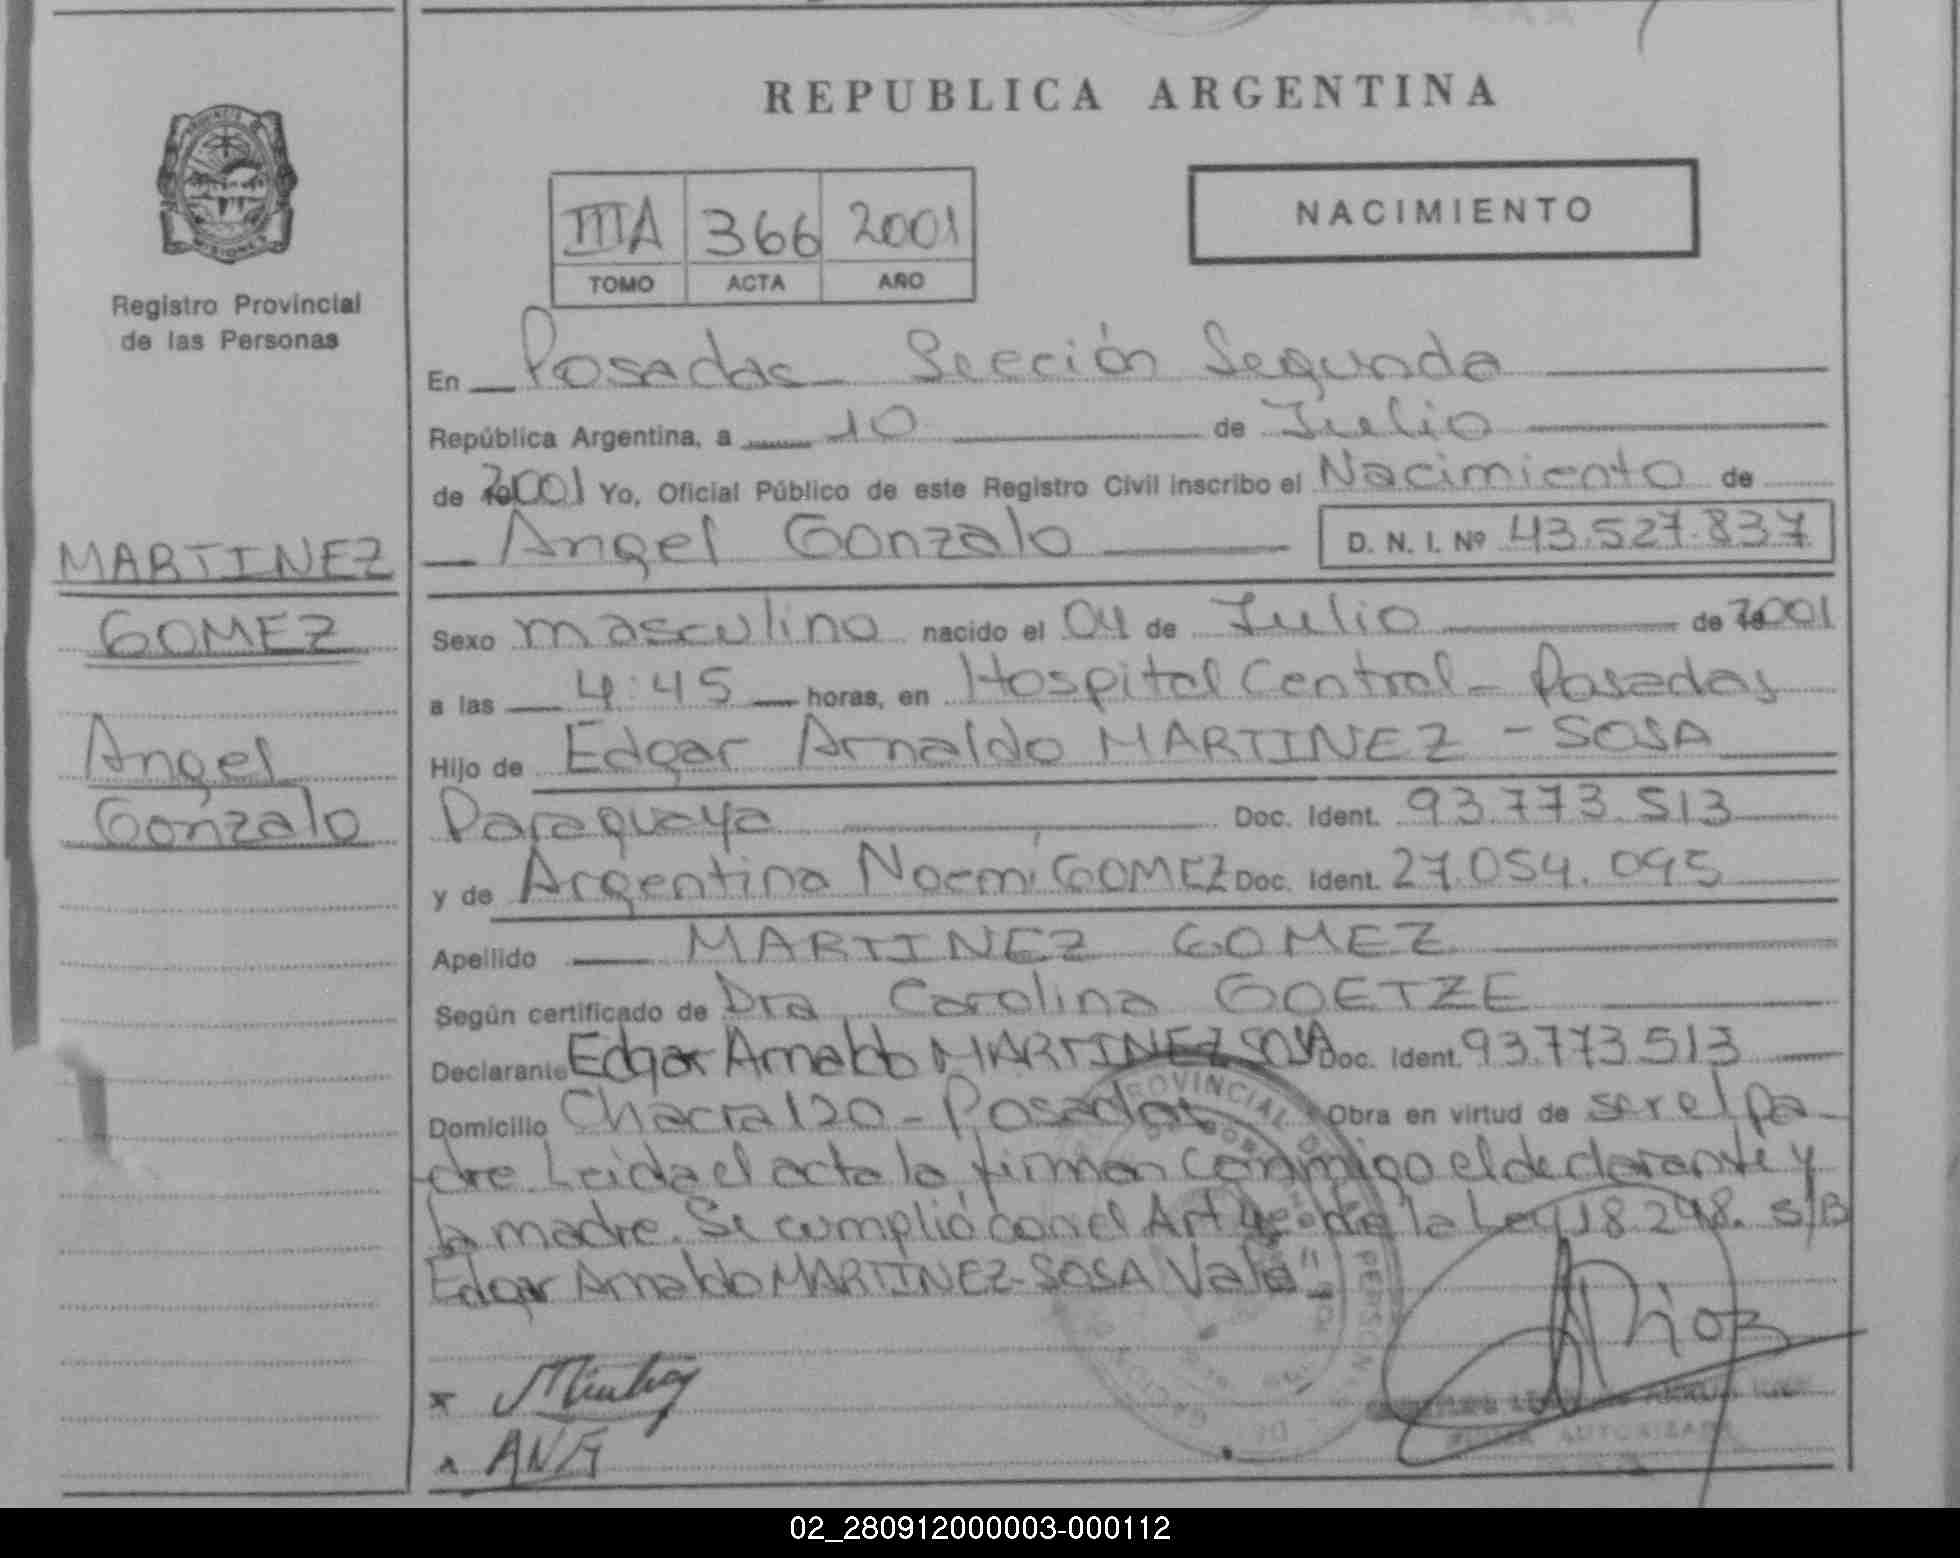 REPUBLICA ARGENTINA
PROVINCIA DE MISIONES
Registro Provincial
de las Personas
MARTINEZ
GOMEZ
Angel
Gonzalo
IIIA 366 2001
TOMO ACTA AÑO
NACIMIENTO
En Posadas - Sección Segunda
República Argentina, a 10 de Julio
de 2001 Yo, Oficial Público de este Registro Civil inscribo el Nacimiento de
Angel Gonzalo D. N. I. Nº 43.527.837
Sexo masculino nacido el 04 de Julio de 2001
a las 4:45 horas, en Hospital Central - Posadas
Hijo de Edgar Arnaldo MARTINEZ - SOSA
Paraguaya Doc. Ident. 93.773.513
y de Argentina Noemí GOMEZ Doc. Ident. 27.054.095
Apellido MARTINEZ GOMEZ
Según certificado de Dra. Carolina GOETZE
Declarante Edgar Arnaldo MARTINEZ SOSA Doc. Ident. 93.773.513
Domicilio Chacra 120 - Posadas Obra en virtud de ser el pa-
dre. Leida el acta la firman conmigo el declarante y
la madre. Se cumplió con el Art 4º de la Ley 18.248. S/B
Edgar Arnaldo MARTINEZ-SOSA Vale"-
PROVINCIAL DE PERSONAS
x
x ANG
AUTORIZADA
02_280912000003-000112